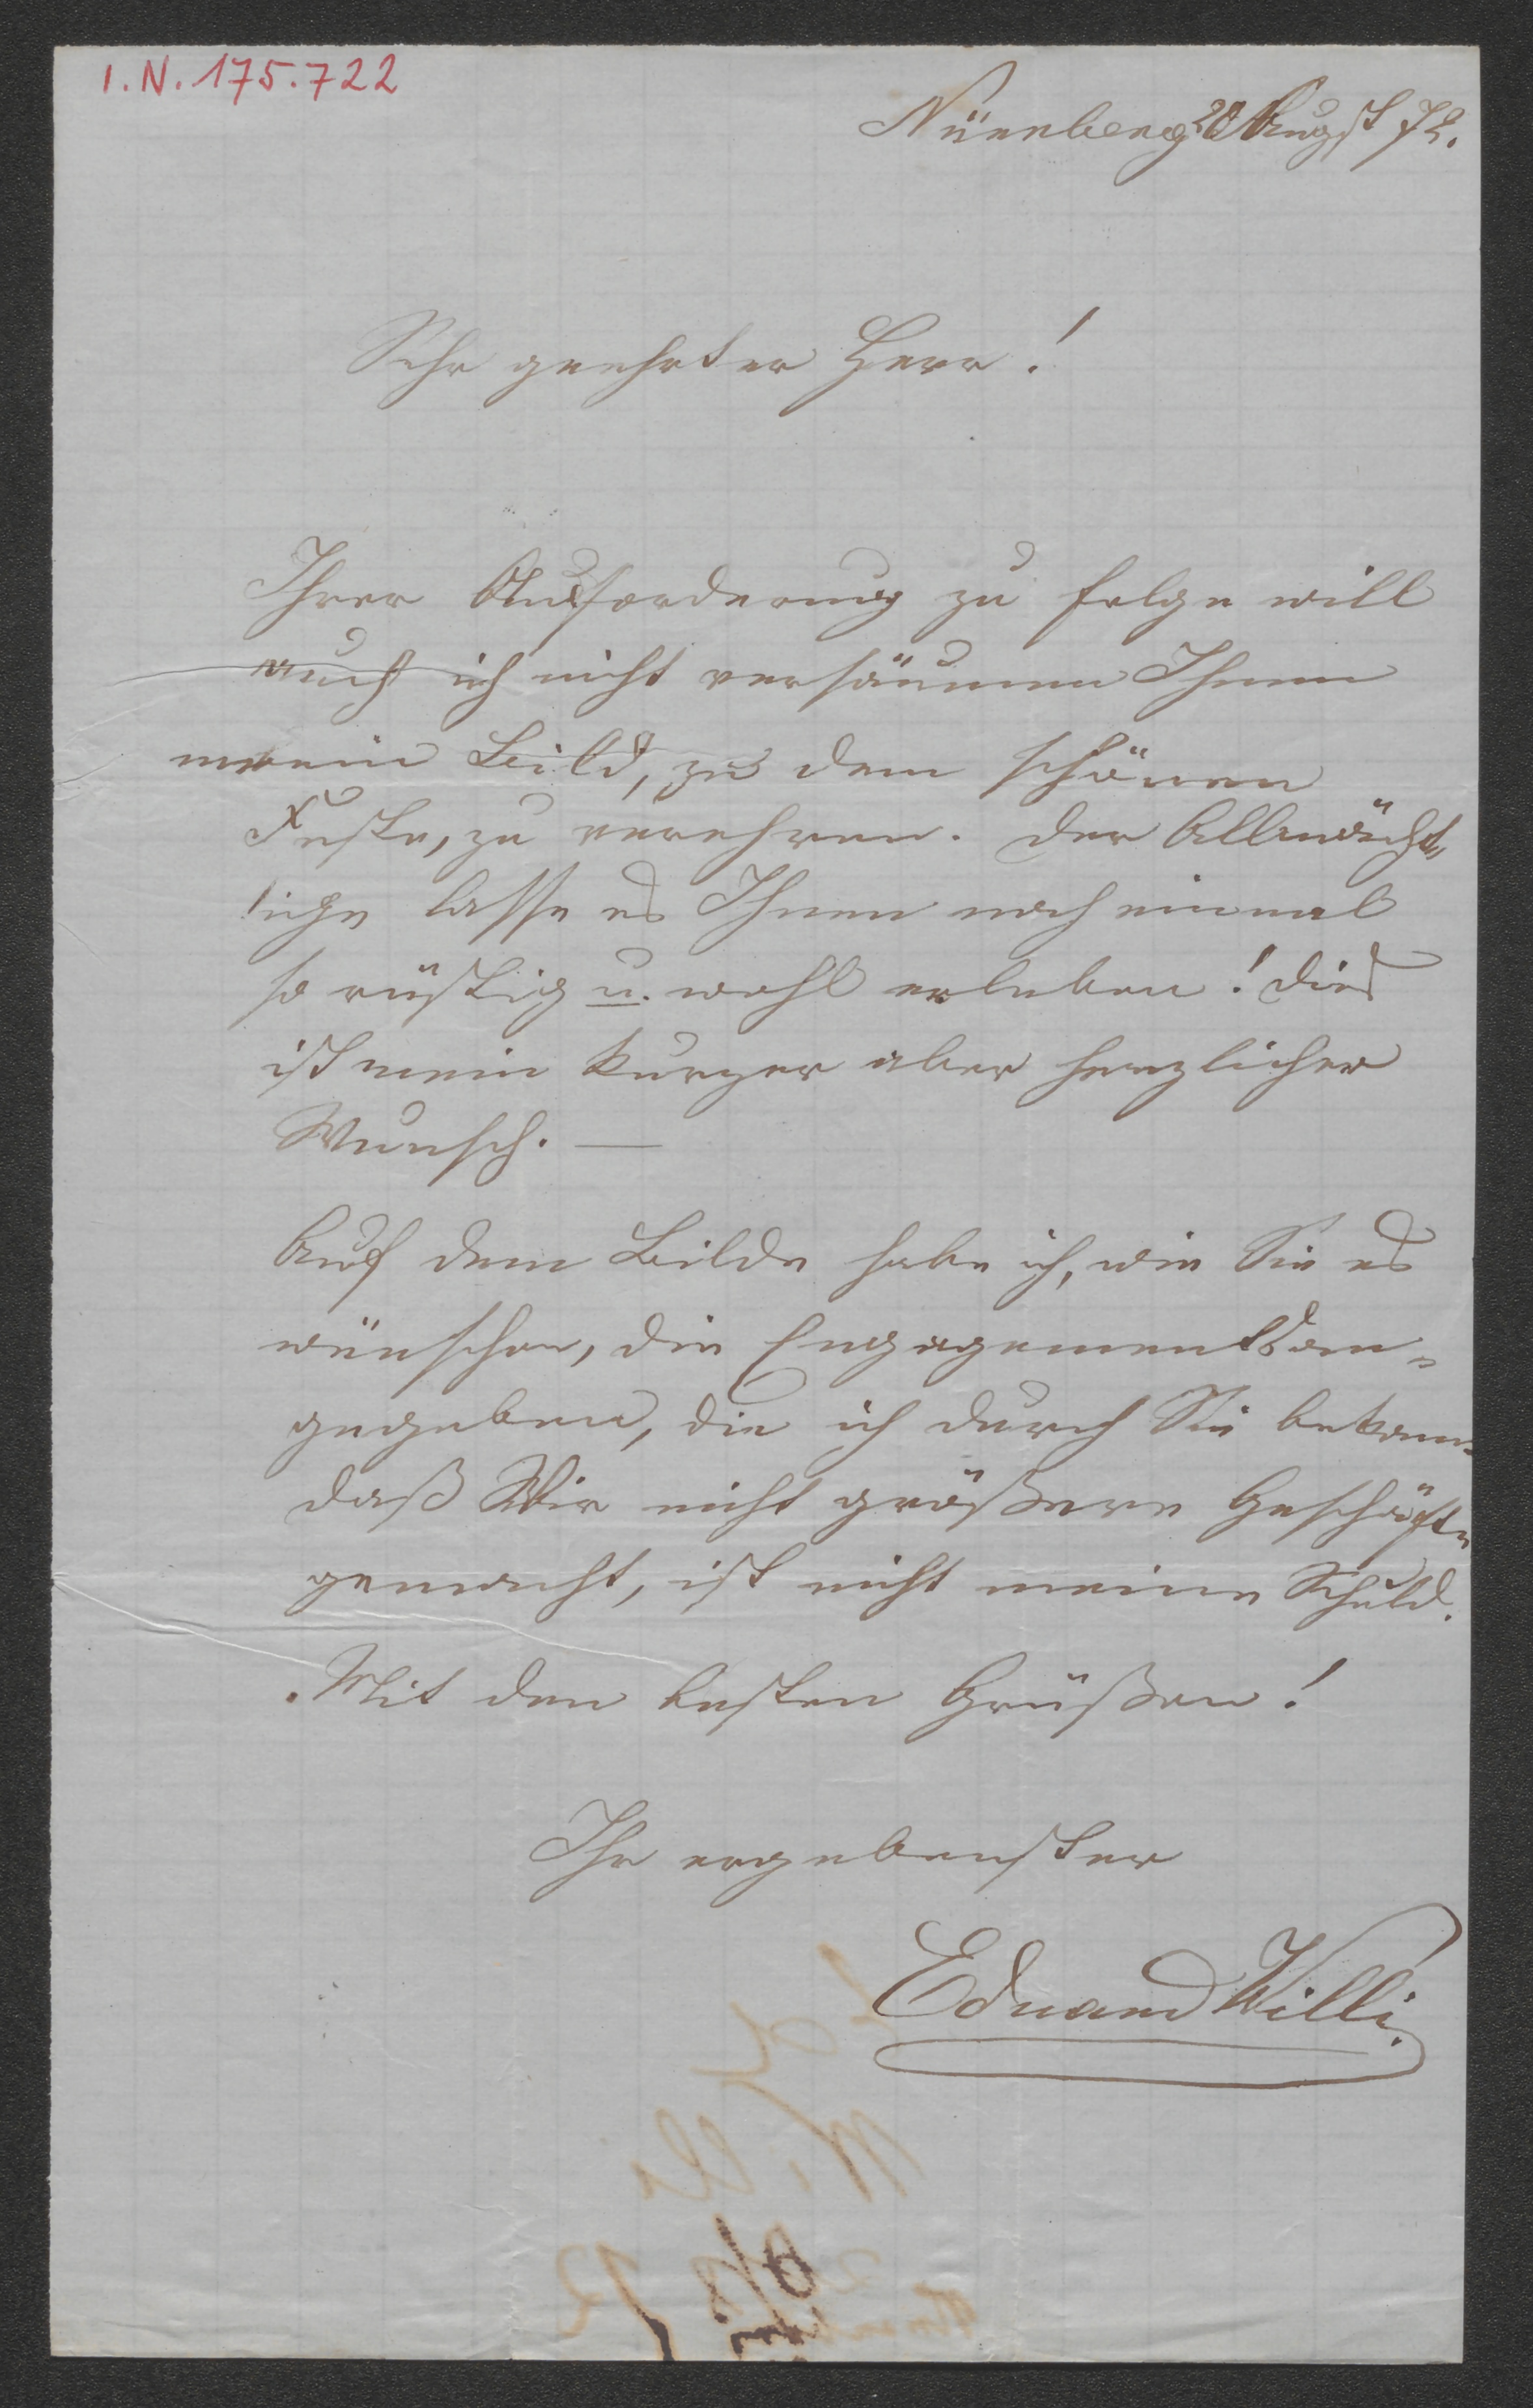 I.N. 175.722
Nürnberg 28 Augst 72.
Sehr geehrter Herr!
Ihrer Aufforderung zu folge will
auch ich nicht versäumen Ihnen
mein Bild, zu dem schönen
Feste, zu verehren. Der Allmächt„
lige lasse es Ihnen noch einmal
so rüstig u. wohl erleben! Dies
ist mein kurzer aber herzlicher
Wunsch. —
Auf dem Bilde habe ich, wie Sie es
wünschen, die Engagements an„
gegeben, die ich durch Sie bekam„
daß Wir nicht größere Geschäfte
gemacht, ist nicht meine Schuld.
Mit den besten Grüßen!
Ihr ergebenster
Eduard Willi.